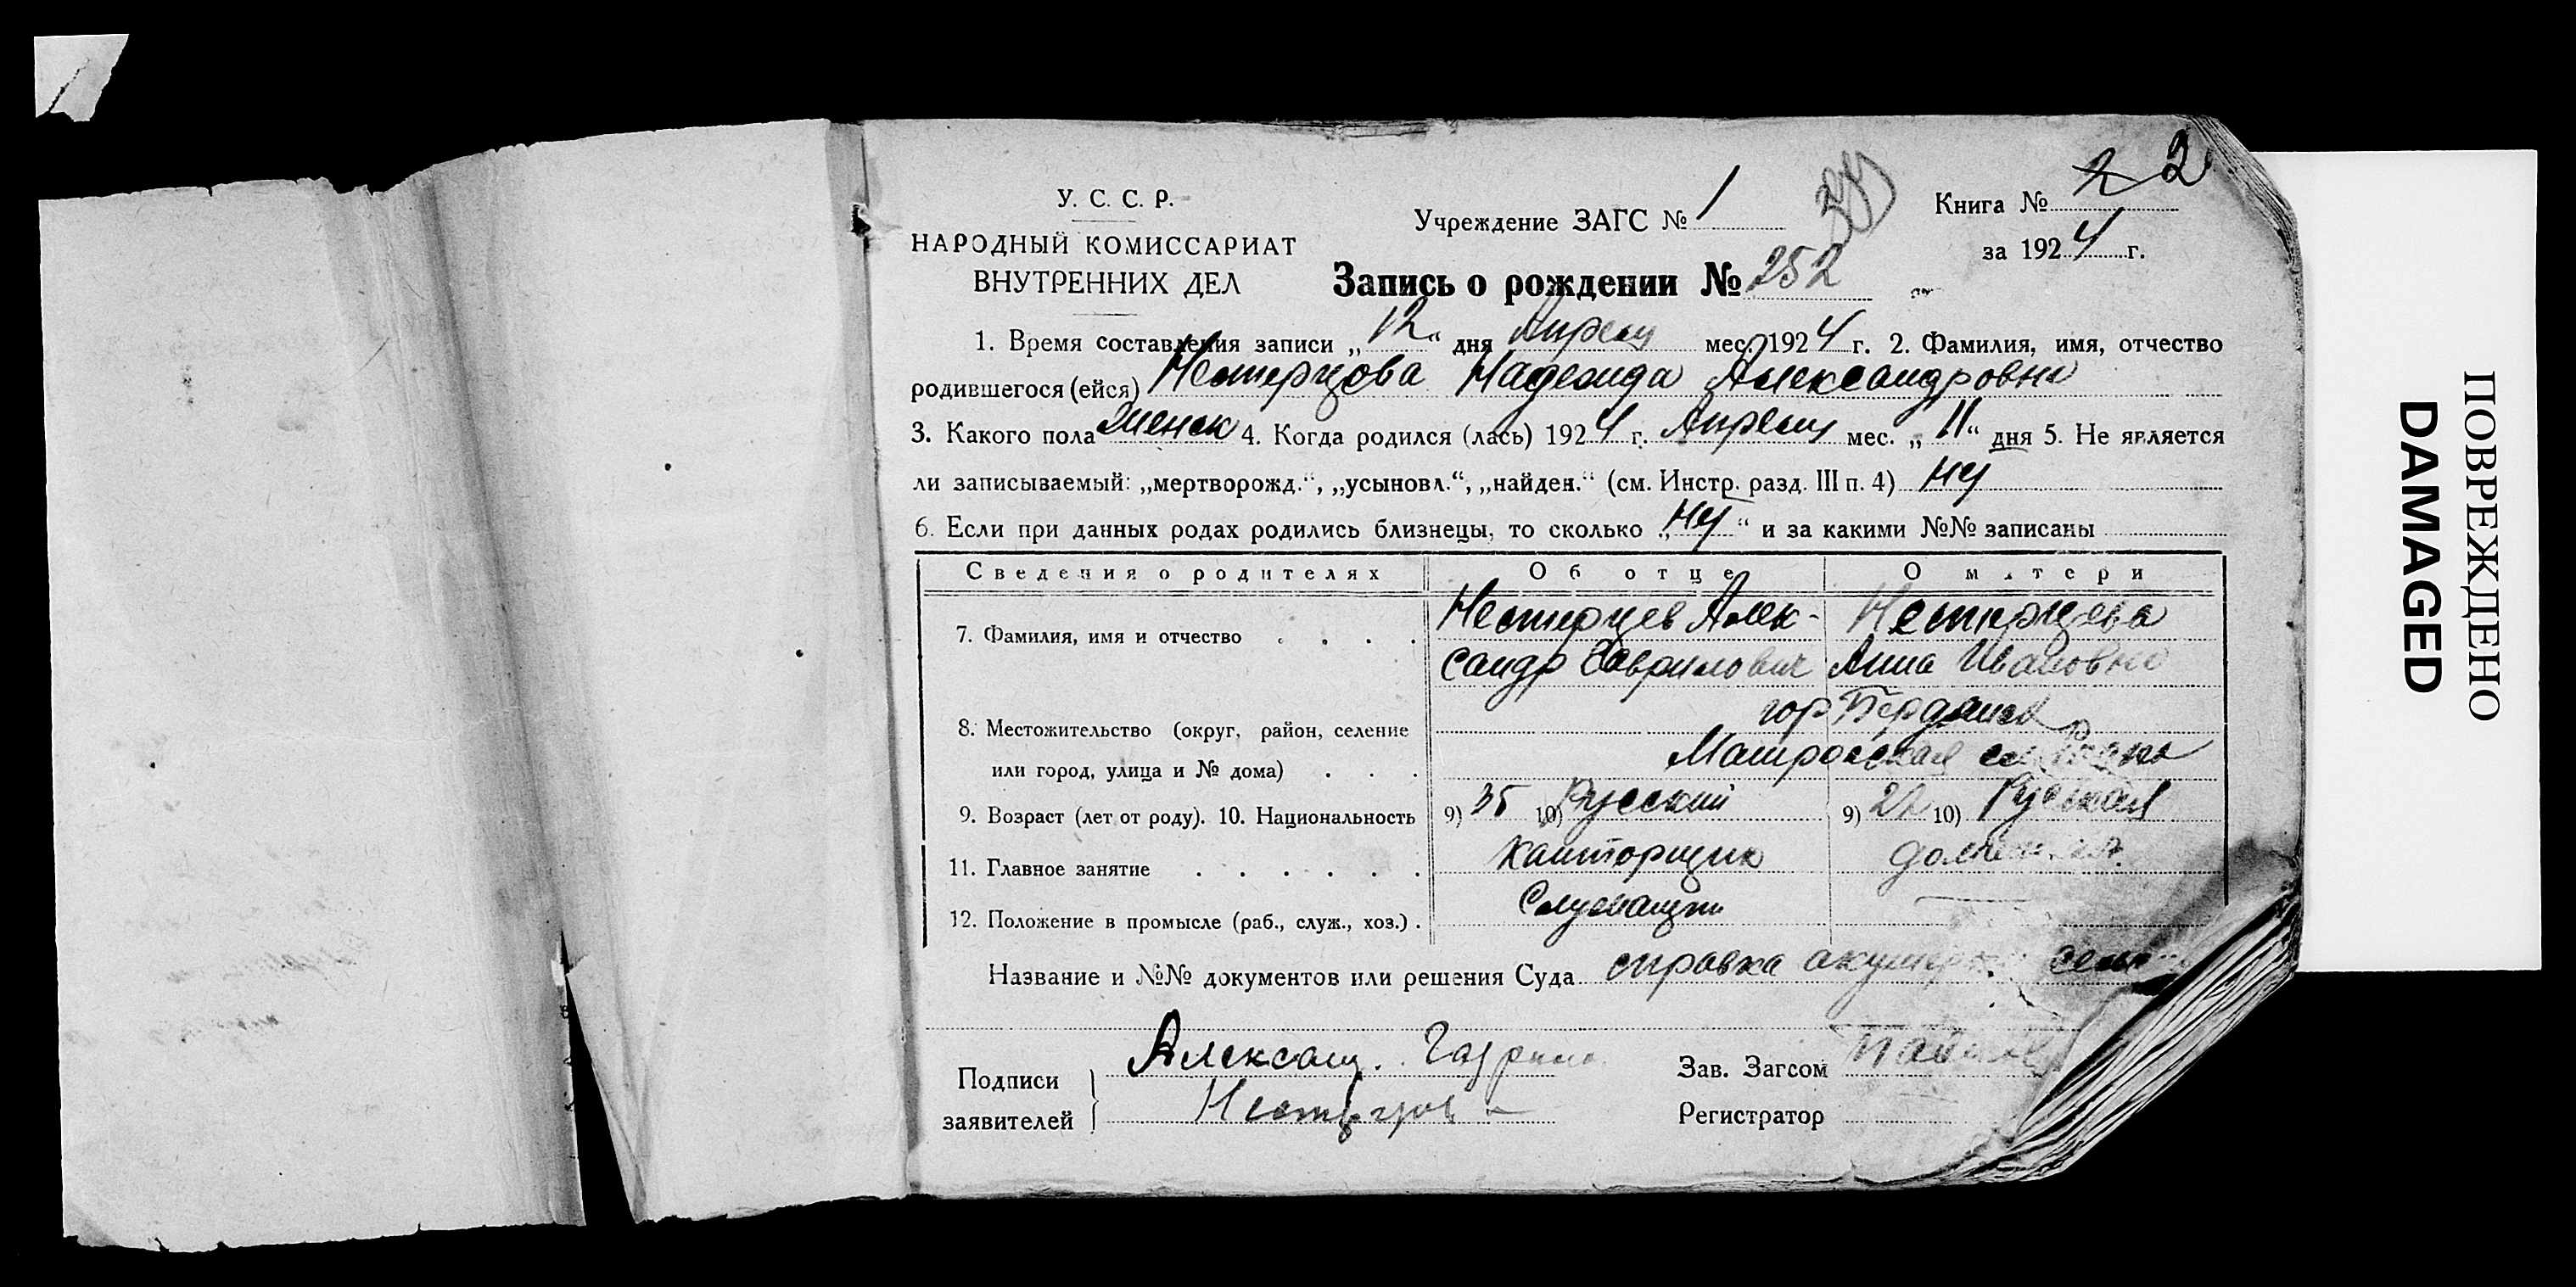 У. С. С. Р.
НАРОДНЫЙ КОМИССАРИАТ
ВНУТРЕННИХ ДЕЛ
Учреждение ЗАГС № 1
Книга № 2 2
за 1924 г.
Запись о рождении № 252
1. Время составления записи „12“ дня Апреля мес. 1924 г. 2. Фамилия, имя, отчество
родившегося (ейся) Нестерцова Надежда Александровна
3. Какого пола Женск 4. Когда родился (лась) 1924 г. Апреля мес. „11“ дня 5. Не является
ли записываемый: „мертворожд.“, „усыновл.“, „найден.“ (см. Инстр. разд. III п. 4)
6. Если при данных родах родились близнецы, то сколько „ “ и за какими №№ записаны
Сведения о родителях Об отце О матери
7. Фамилия, имя и отчество . . . . Нестерцев Алек- Нестерцева
сандр Гаврилович Анна Ивановна
гор Бердянск
8. Местожительство (округ, район, селение
или город, улица и № дома) . . . Матросская
9. Возраст (лет от роду). 10. Национальность 9) 35 10) Русский 9) 22 10) Русская
11. Главное занятие . . . . . . Канторщик
12. Положение в промысле (раб., служ., хоз.) . Служащий
Название и №№ документов или решения Суда справка
Подписи
заявителей
Александ. Гаврил
Зав. Загсом
Регистратор
ПОВРЕЖДЕНО
DAMAGED